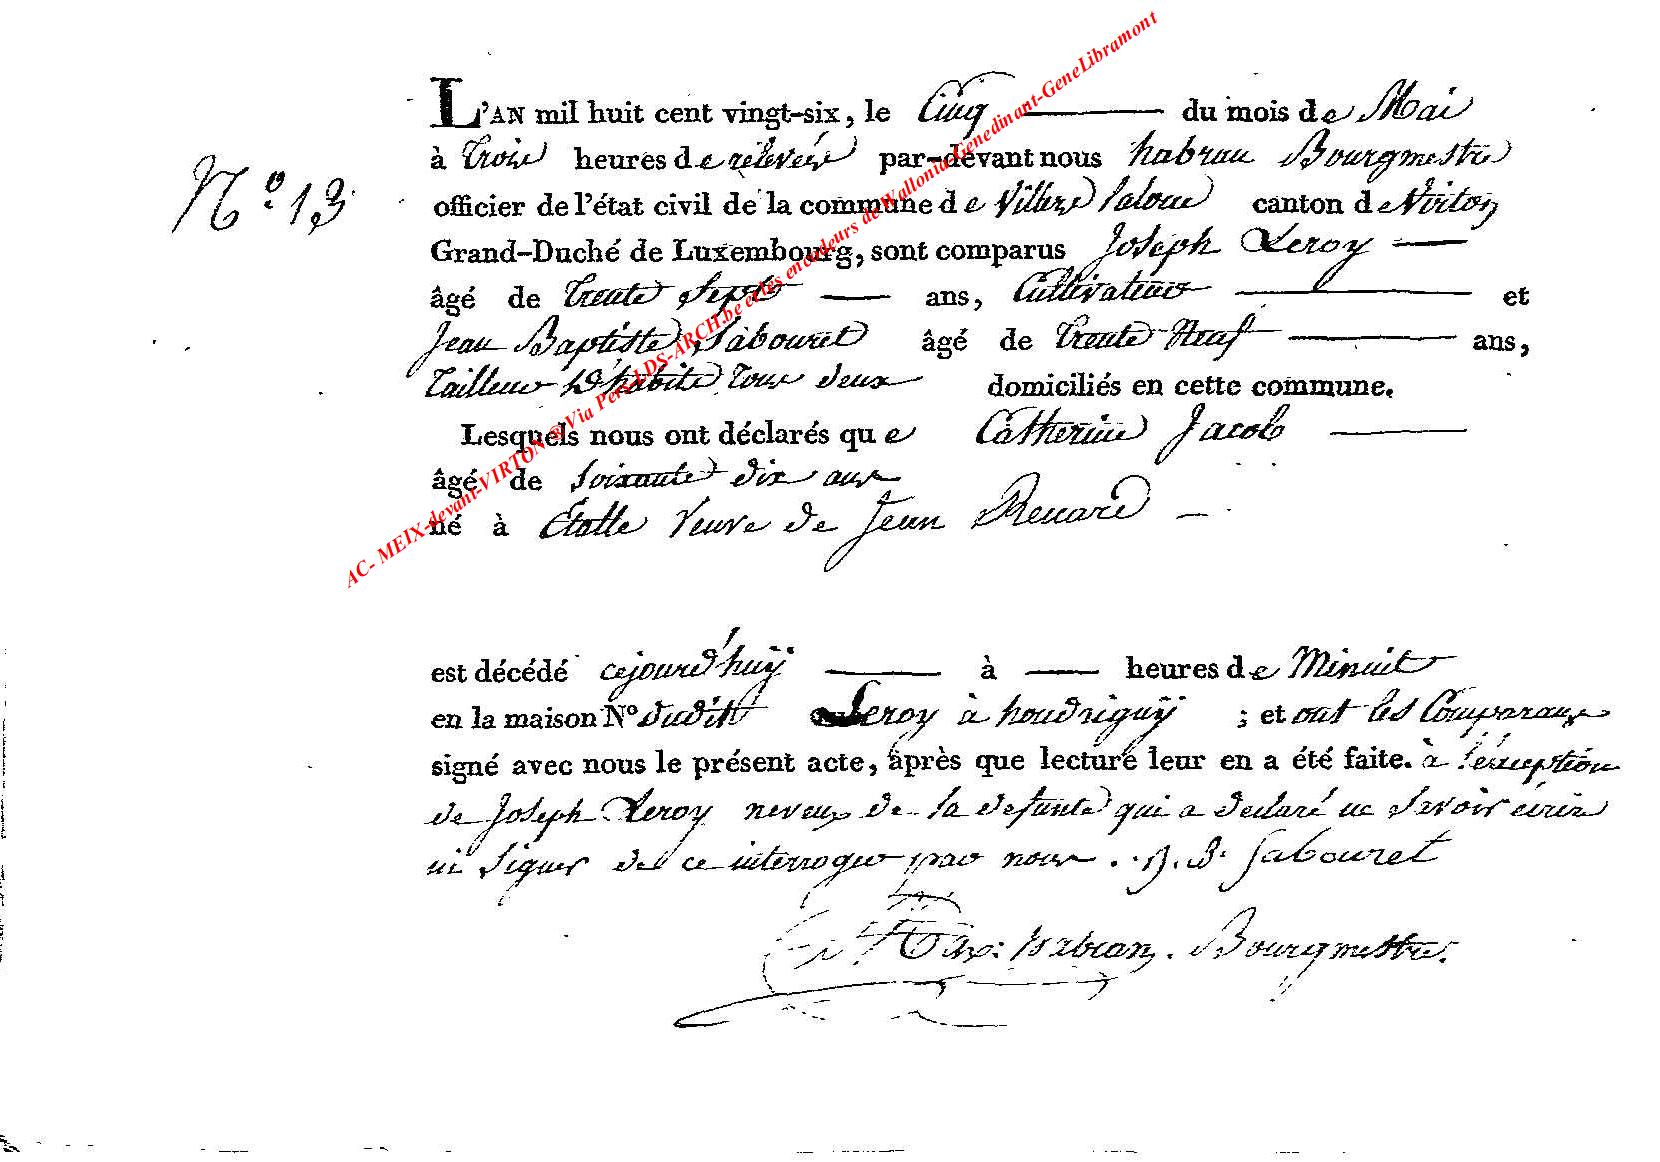 L'AN mil huit cent vingt-six, le Cinq du mois de Mai
N.º 13
à Trois heures de relevée par-devant nous habran Bourgmestre
officier de l'état civil de la commune de Villers laloue canton de Virton
Grand-Duché de Luxembourg, sont comparus Joseph Leroy
âgé de Trente Sept ans, Cultivateur et
Jean Baptiste Sabouret âgé de Trente Neuf ans,
Tailleur D'habite Tous deux domiciliés en cette commune.
Lesquels nous ont déclarés que Catherine Jacob
âgé de Soixante dix ans
né à Étalle Veuve de Jean Renard
est décédé cejourd'huÿ à heures de Minuit
en la maison Nº dudit Leroy à houdriguÿ ; et ont les Comparans
signé avec nous le présent acte, après que lecture leur en a été faite. à l'éxception
de Joseph Leroy neveux de la defunte qui a declaré ne Savoir écrire
ni Signer de ce interroger par nous. J. B. Sabouret
habran. Bourgmestre.
AC- MEIX-devant-VIRTON ® Via Pers LDS-ARCH.be et les encodeurs de Wallonia-Genedinant-GeneLibramont